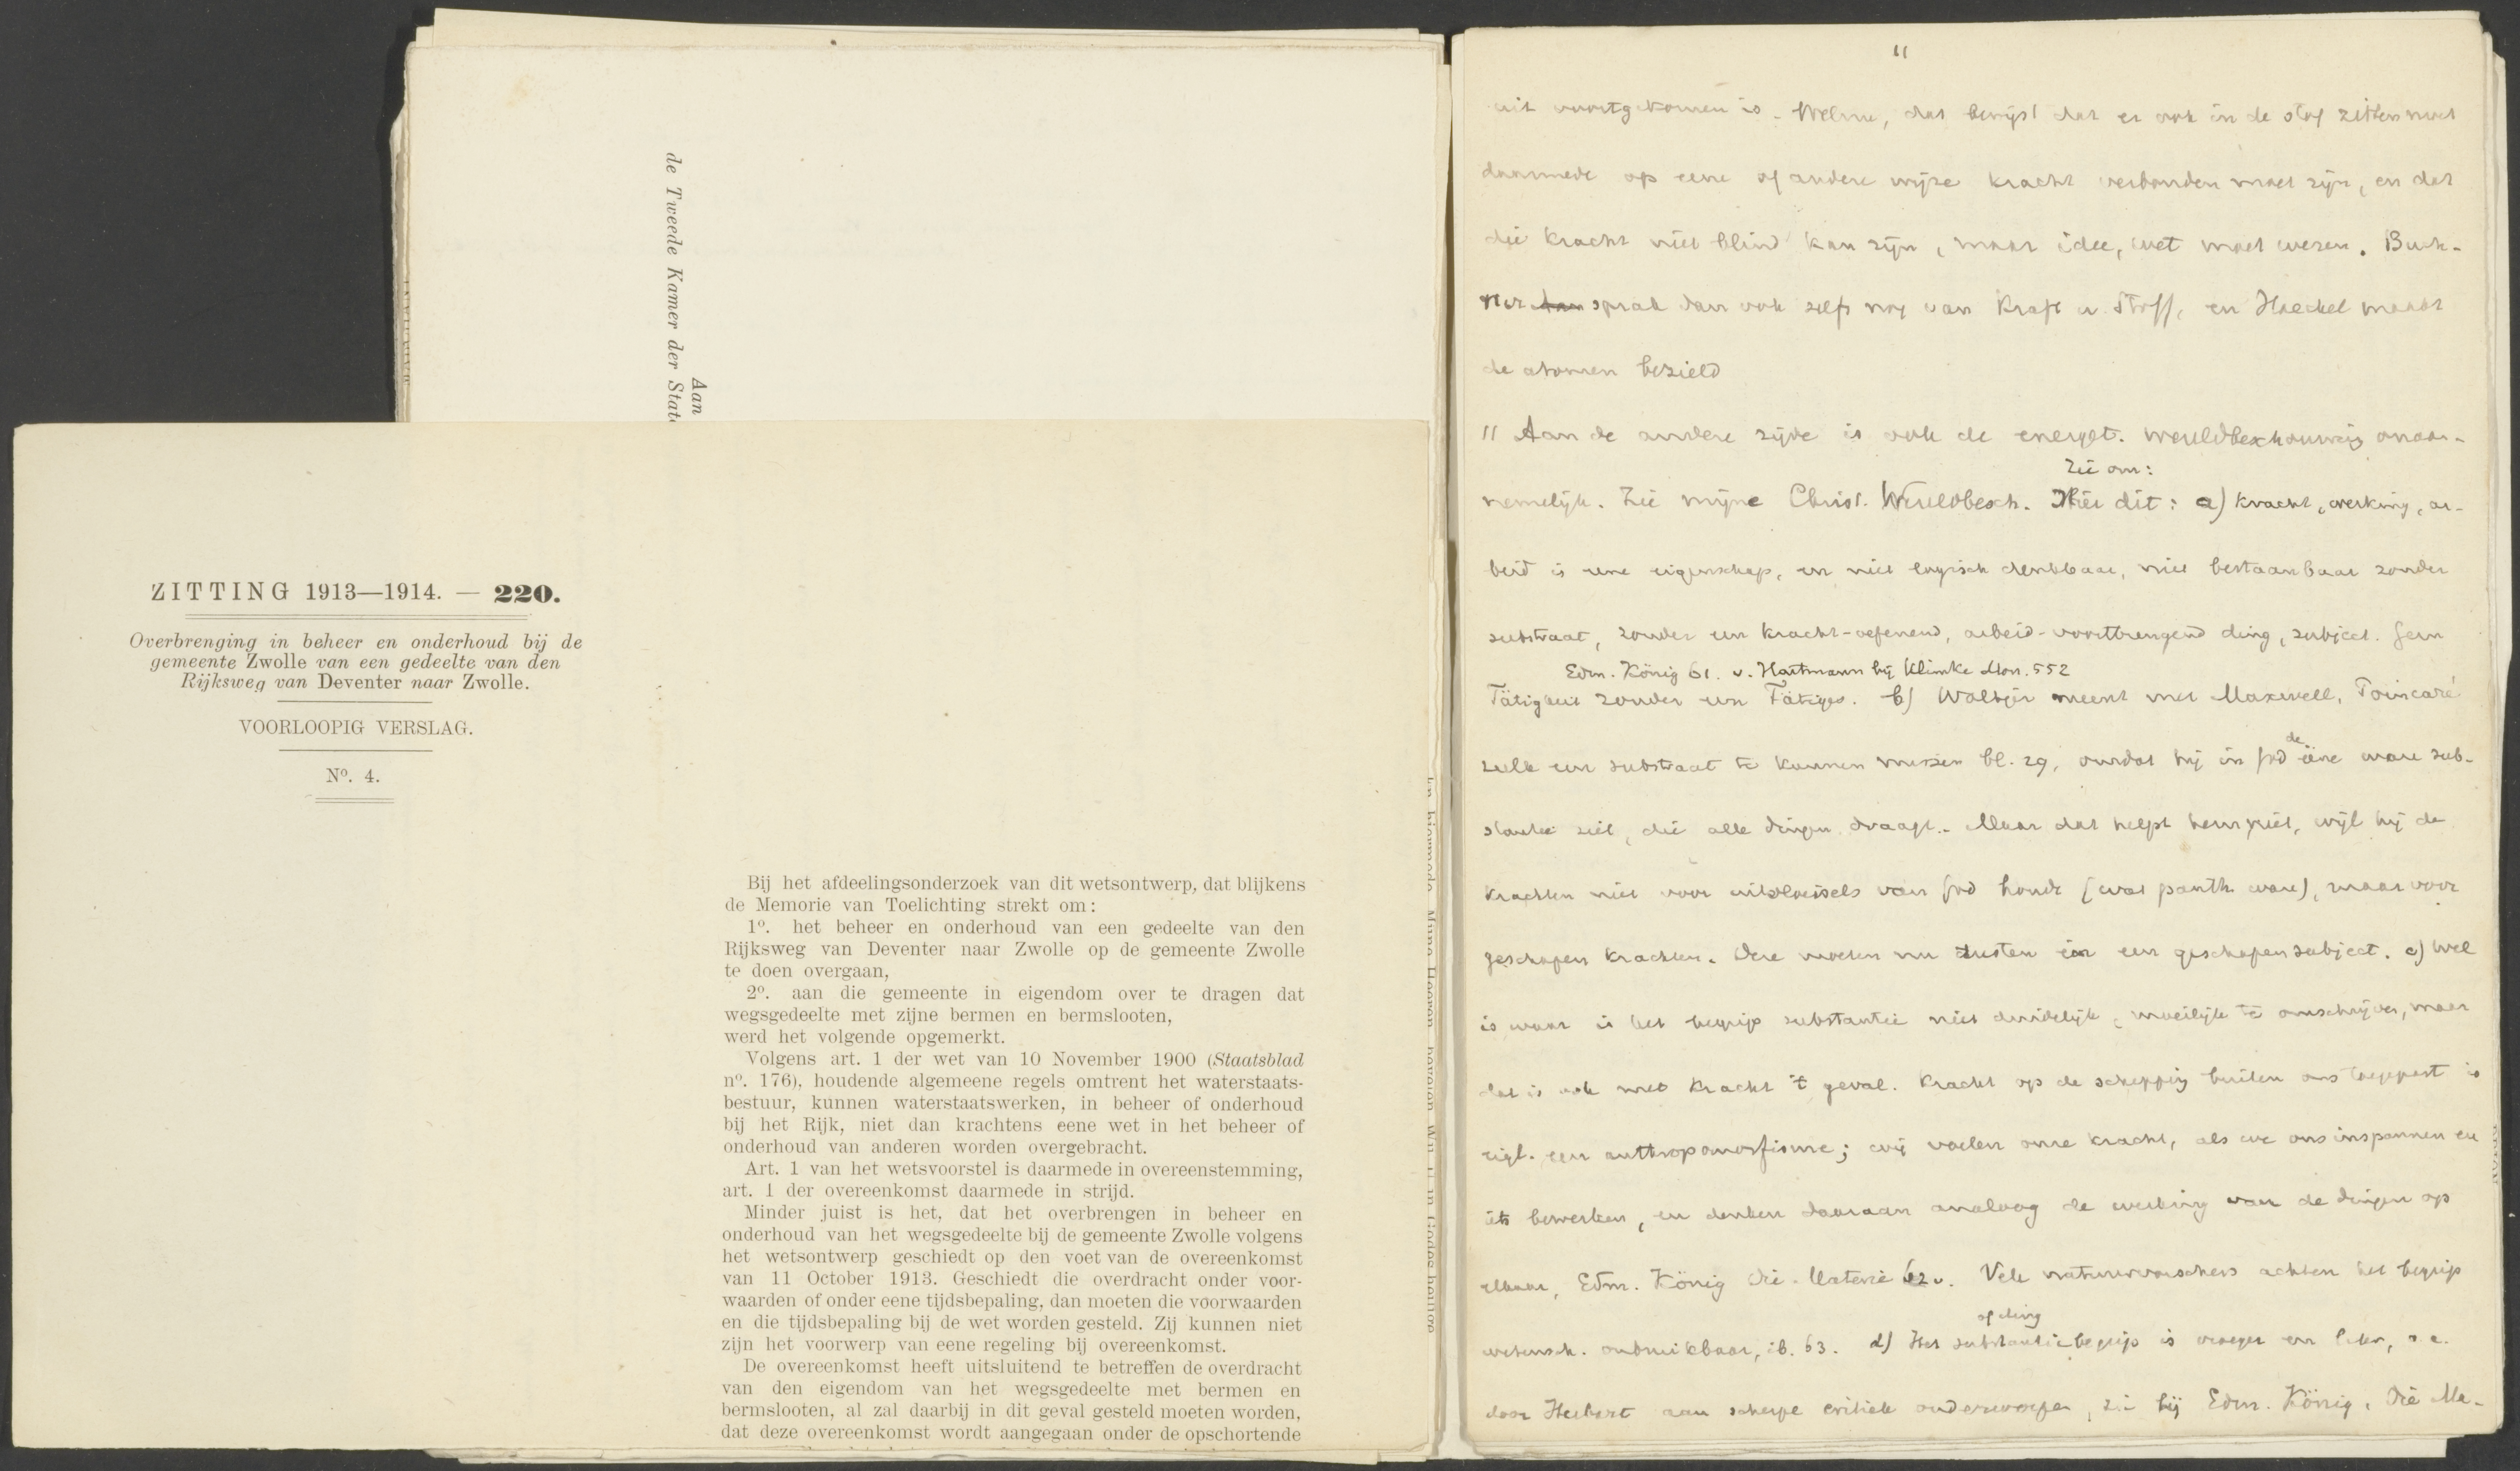 de Tweede Kamer der State
Aan
ZITTING 1913—1914. — 220.
Overbrenging in beheer en onderhoud bij de
gemeente Zwolle van een gedeelte van den
Rijksweg van Deventer naar Zwolle.
VOORLOOPIG VERSLAG.
Nº. 4.
Bij het afdeelingsonderzoek van dit wetsontwerp, dat blijkens
de Memorie van Toelichting strekt om:
1º. het beheer en onderhoud van een gedeelte van den
Rijksweg van Deventer naar Zwolle op de gemeente Zwolle
te doen overgaan,
2º. aan die gemeente in eigendom over te dragen dat
wegsgedeelte met zijne bermen en bermslooten,
werd het volgende opgemerkt.
Volgens art. 1 der wet van 10 November 1900 (Staatsblad
nº. 176), houdende algemeene regels omtrent het waterstaats-
bestuur, kunnen waterstaatswerken, in beheer of onderhoud
bij het Rijk, niet dan krachtens eene wet in het beheer of
onderhoud van anderen worden overgebracht.
Art. 1 van het wetsvoorstel is daarmede in overeenstemming,
art. 1 der overeenkomst daarmede in strijd.
Minder juist is het, dat het overbrengen in beheer en
onderhoud van het wegsgedeelte bij de gemeente Zwolle volgens
het wetsontwerp geschiedt op den voet van de overeenkomst
van 11 October 1913. Geschiedt die overdracht onder voor-
waarden of onder eene tijdsbepaling, dan moeten die voorwaarden
en die tijdsbepaling bij de wet worden gesteld. Zij kunnen niet
zijn het voorwerp van eene regeling bij overeenkomst.
De overeenkomst heeft uitsluitend te betreffen de overdracht
van den eigendom van het wegsgedeelte met bermen en
bermslooten, al zal daarbij in dit geval gesteld moeten worden,
dat deze overeenkomst wordt aangegaan onder de opschortende
11
uit voortgekomen is. Welnu, dat bewijst dat er ook in de stof zitten moet
daarmede op eene of andere wijze kracht verbonden moet zijn, en dat
die kracht niet blind kan zijn, maar idee, wet moet wezen. Buch-
ner dan sprak dan ook zelfs nog van Kraft u. Stoff, en Haeckel maakt
de atomen bezield
11 Aan de andere zijde is ook de energet. wereldbeschouwing onaan-
zie om:
nemelijk. Zie mijne Christ. Wereldbesch. Hier dit: a) kracht, werking, ar-
beid is eene eigenschap, en niet logisch denkbaar, niet bestaanbaar zonder
substraat, zonder een kracht-oefenend, arbeid-voortbrengend ding, subject. Geen
Edm. König 61. v. Hartmann bij Klimke Mon. 552
Tätigkeit zonder een Tätiges. b) Woltjer meent met Maxwell, Poincaré
zulk een substraat te kunnen missen bl. 29, omdat hij in God de ééne ware sub-
stantie ziet, die alle dingen draagt. Maar dat helpt hem niet, wijl hij de
krachten niet voor uitvloeisels van God houdt (wat panth. ware), maar voor
geschapen krachten. Deze moeten nu rusten in een geschapen subject. c) Wel
is waar is het begrip substantie niet duidelijk, moeilijk te omschrijven, maar
dat is ook met kracht 't geval. Kracht op de schepping buiten ons toegepast is
eigl. een anthropomorfisme; wij voelen onze kracht, als we ons inspannen en
iets bewerken, en denken daaraan analoog de werking van de dingen op
elkaar, Edm. König Die Materie 62 v. Vele natuurvorschers achten het begrip
of ding
wetensch. onbruikbaar, ib. 63. d) Het substantiebegrip is vroeger en later, o.a.
door Herbart aan scherpe critiek onderworpen, zie bij Edm. König, Die Ma-